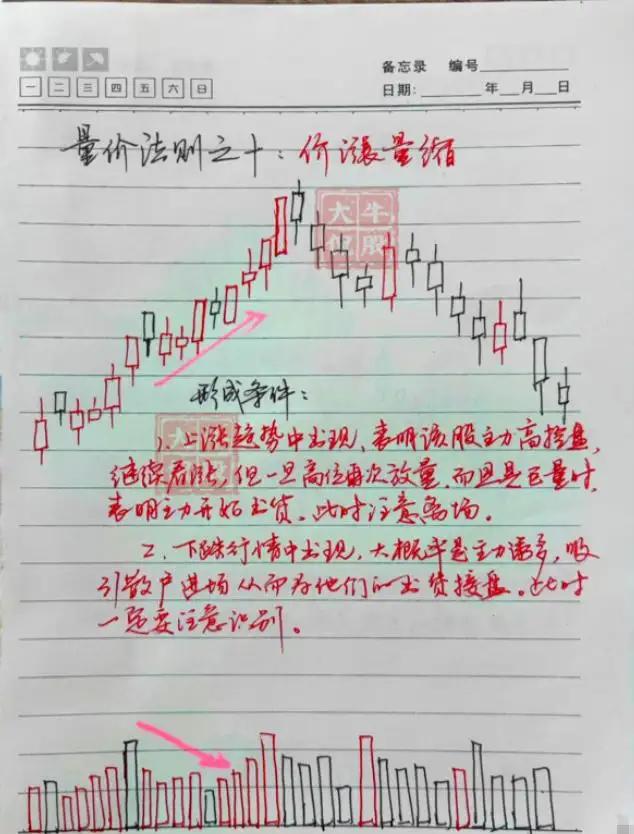 备忘录 编号
一 二 三 四 五 六 日
日期: 年 月 日
量价法则之十：价涨量缩
大牛
亿股
形成条件：
1、上涨趋势中出现，表明该股主力高控盘，
继续看涨，但一旦高位再次放量，而且是巨量时，
表明主力开始出货。此时注意离场。
2、下跌行情中出现，大概率是主力诱多，吸
引散户进场从而为他们的出货接盘。此时
一定要注意识别。